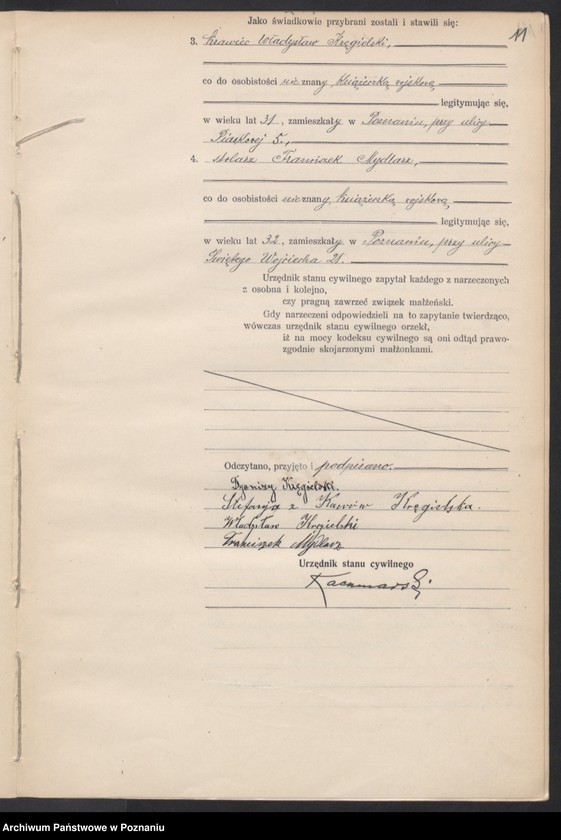 11
Jako świadkowie przybrani zostali i stawili się:
3. krawiec Władysław Kręgielski,
co do osobistości nieznany książeczką wojskową
legitymując się,
w wieku lat 31, zamieszkały w Poznaniu, przy ulicy
Piaskowej 5.,
4. stolarz Franciszek Mydlarz,
co do osobistości nieznany, książeczką wojskową,
legitymując się,
w wieku lat 32, zamieszkały w Poznaniu, przy ulicy
Świętego Wojciecha 21.
Urzędnik stanu cywilnego zapytał każdego z narzeczonych
z osobna i kolejno,
czy pragną zawrzeć związek małżeński.
Gdy narzeczeni odpowiedzieli na to zapytanie twierdząco,
wówczas urzędnik stanu cywilnego orzekł,
iż na mocy kodeksu cywilnego są oni odtąd prawo-
zgodnie skojarzonymi małżonkami.
Odczytano, przyjęto i podpisano.
Dyonizy Kręgielski.
Stefanja z Kawów Kręgielska.
Władysław Kręgielski
Franciszek Mydlarz
Urzędnik stanu cywilnego
Kaczmarski
Archiwum Państwowe w Poznaniu